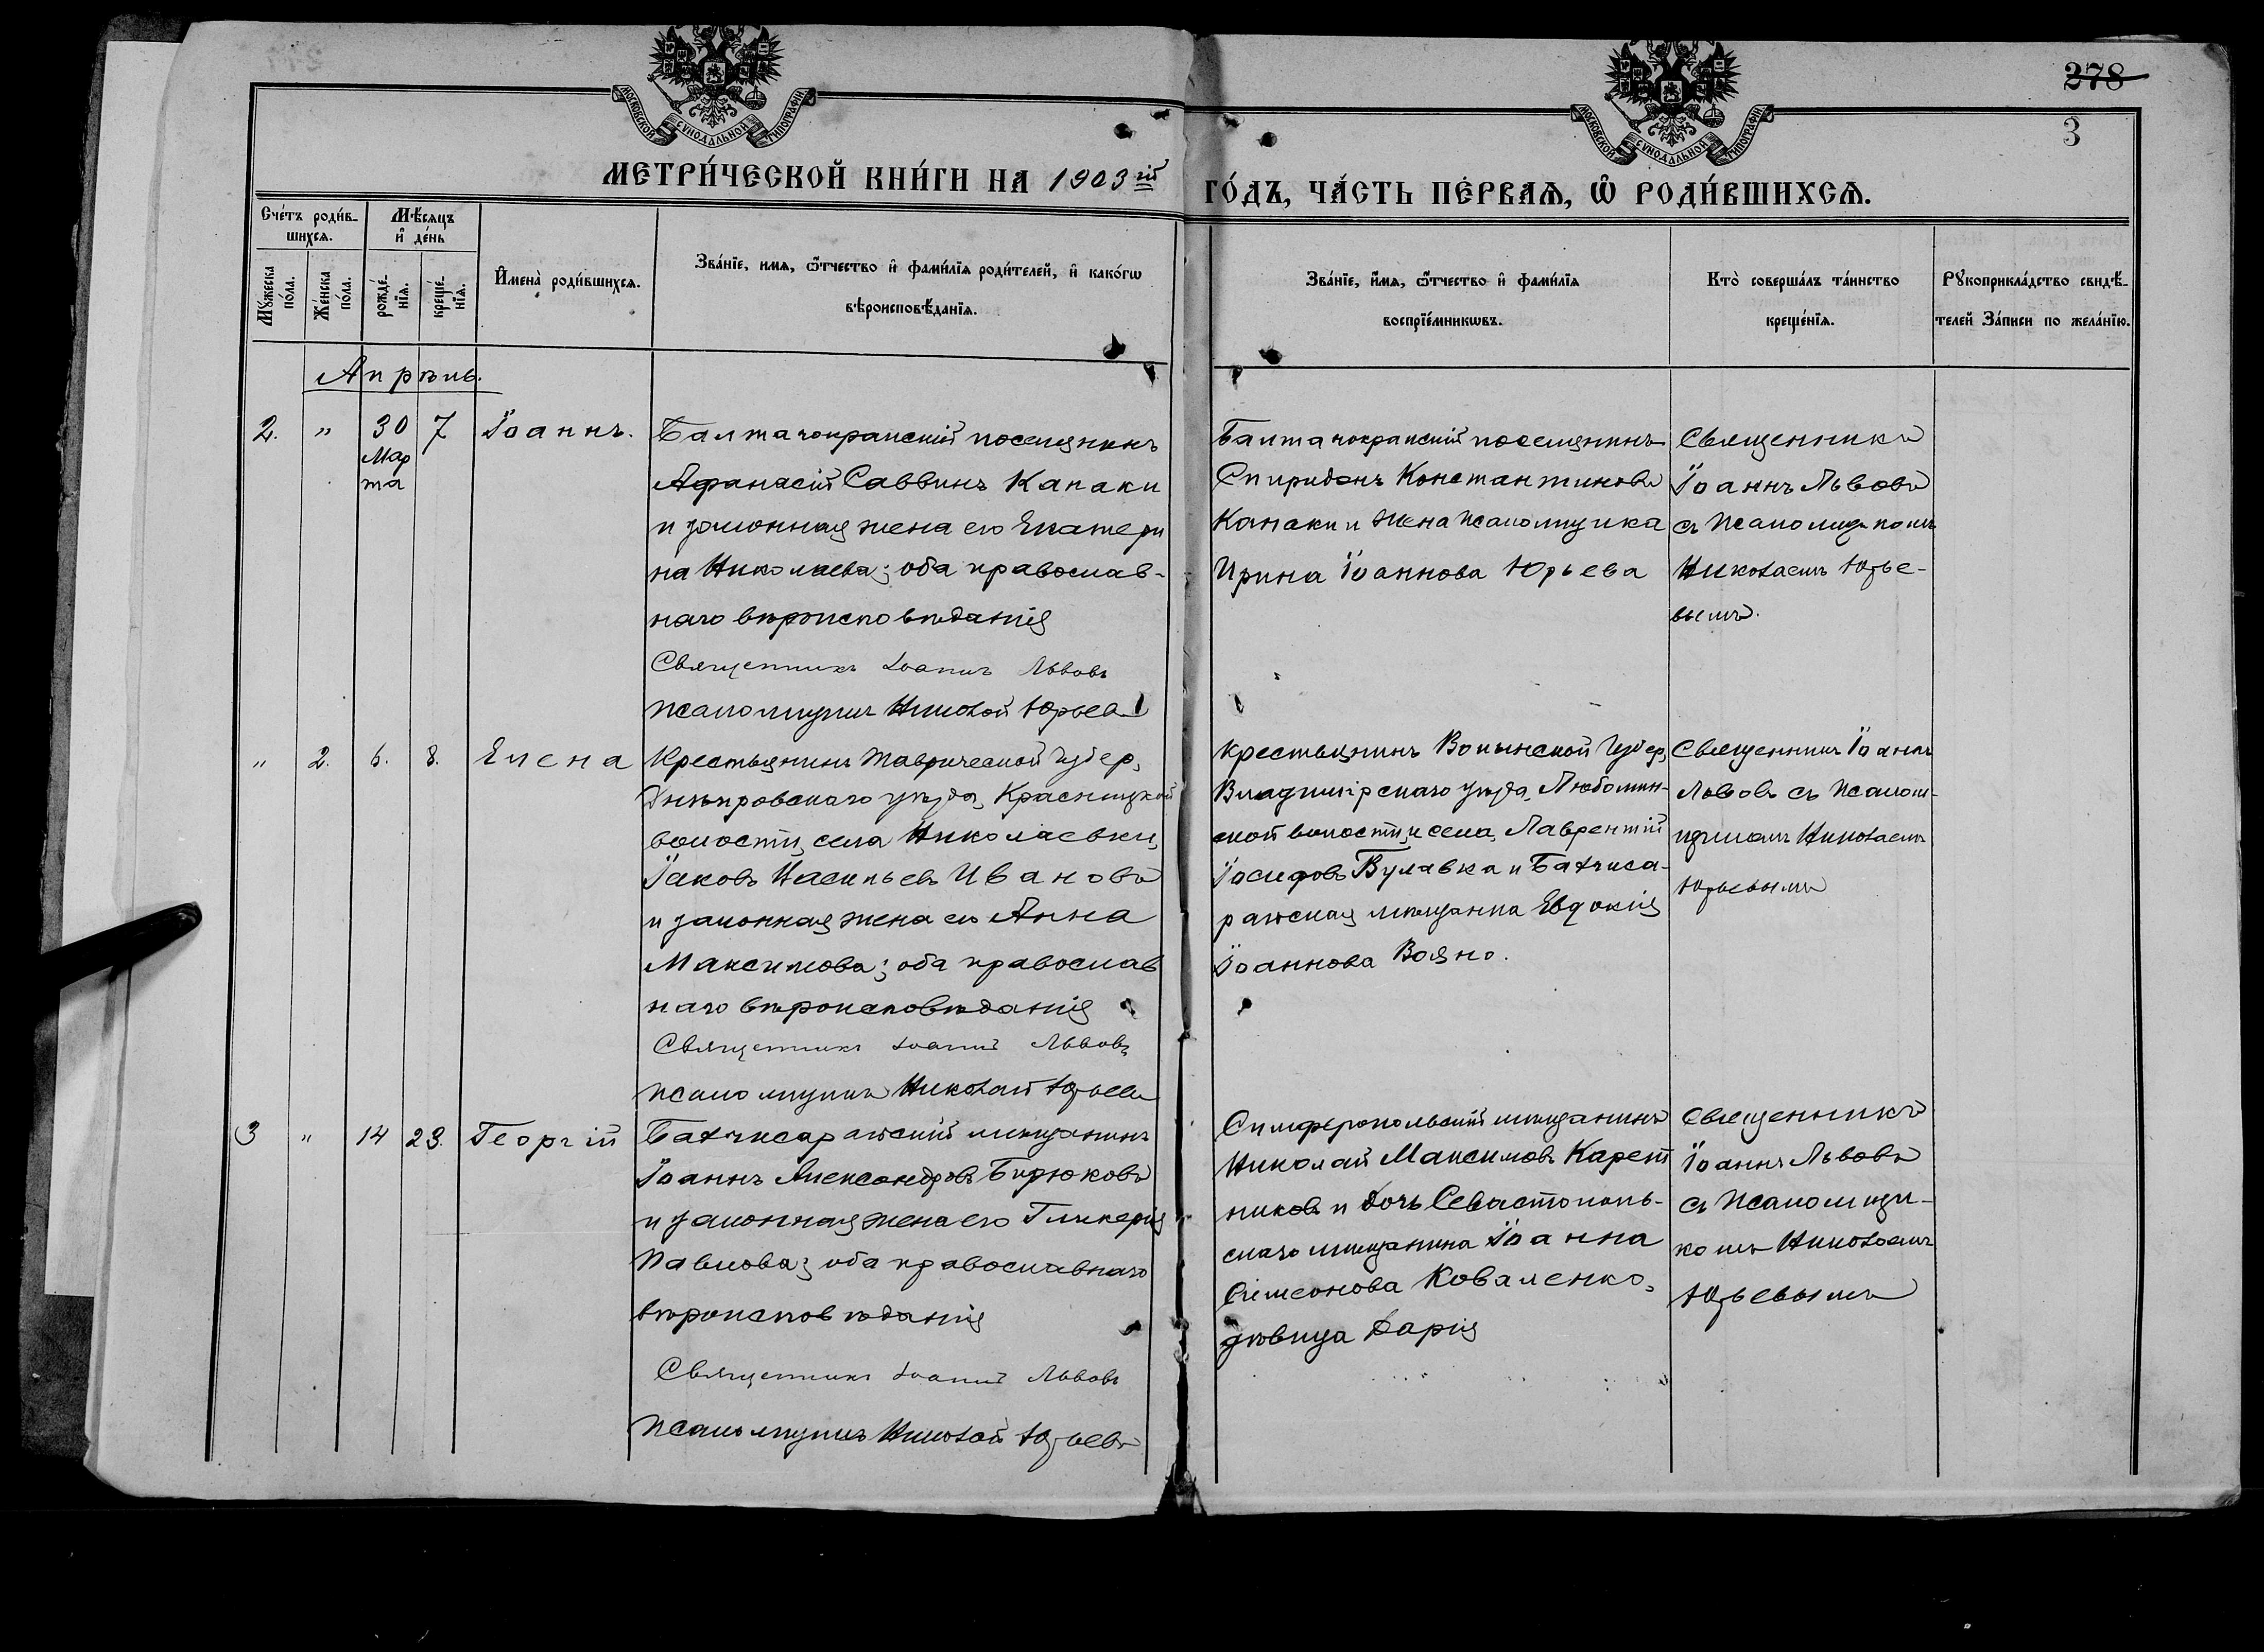 278
3
МОСКОВСКОЙ СѴНОДАЛЬНОЙ ТИПОГРАФІИ
МОСКОВСКОЙ СѴНОДАЛЬНОЙ ТИПОГРАФІИ
МЕТРИ́ЧЕСКОЙ КНИ́ГИ НА 1903 ій
ГО́ДЪ, ЧА́СТЬ ПЕ́РВАѦ, Ѡ РОДИ́ВШИХСѦ.
Сче́тъ роди́в-
шихсѧ.
Мꙋжеска
по́ла.
Же́нска
по́ла.
Мѣ́сѧцъ
и де́нь
рожде́-
нїѧ.
креще́-
нїѧ.
Имена̀ роди́вшихсѧ.
Зва́нїе, имѧ, ѿтчество и фами́лїѧ роди́телей, и како́гѡ
вѣроисповѣ́данїѧ.
Зва́нїе, и́мѧ, ѿтчество и фами́лїѧ
воспрїе́мникѡвъ.
Кто̀ соверша́лъ та́инство
креще́нїѧ.
Рꙋкоприкла́дство свидѣ́-
телей За́писи по жела́нїю.
Апрѣль.
2. " 30 7 Іоаннъ.
Мар
та
Балтачокракскій поселянинъ
Афанасій Саввинъ Капаки
и законная жена его Екатери
на Николаева; оба православ-
наго вѣроисповѣданія
Священникъ Іоаннъ Львовъ
Псаломщикъ Николай Юрьевъ
Балтачокракскій поселянинъ
Спиридонъ Константиновъ
Капаки и жена псаломщика
Ирина Іоаннова Юрьева
Священникъ
Іоаннъ Львовъ
съ псаломщикомъ
Николаемъ Юрье-
вымъ.
" 2. 6. 8. Елена
Крестьянинъ Таврической Губер.
Днѣпровскаго уѣзда,
волости, села Николаевки,
Іаковъ Васильевъ Ивановъ
и законная жена его Анна
Максимова; оба православ
наго вѣроисповѣданія
Священникъ Іоаннъ Львовъ
Псаломщикъ Николай Юрьевъ
Крестьянинъ Волынской Губер.
Владимірскаго уѣзда, Любомль-
ской волости, и села, Лаврентій
Іосифовъ Булавка и Бахчиса-
райская мѣщанка Евдокія
Іоаннова Вояно.
Священникъ Іоаннъ
Львовъ съ псалом-
щикомъ Николаемъ
Юрьевымъ
3 " 14 23. Георгій
Бахчисарайскій мѣщанинъ
Іоаннъ Александровъ Бирюковъ
и законная жена его Гликерія
Павлова; оба православнаго
вѣроисповѣданія
Священникъ Іоаннъ Львовъ
Псаломщикъ Николай Юрьевъ
Симферопольскій мѣщанинъ
Николай Максимовъ Карет
никовъ и дочь Севастополь-
скаго мѣщанина Іоанна
Сімеонова Коваленко,
дѣвица Дарія
Священникъ
Іоаннъ Львовъ
съ Псаломщи-
комъ Николаемъ
Юрьевымъ